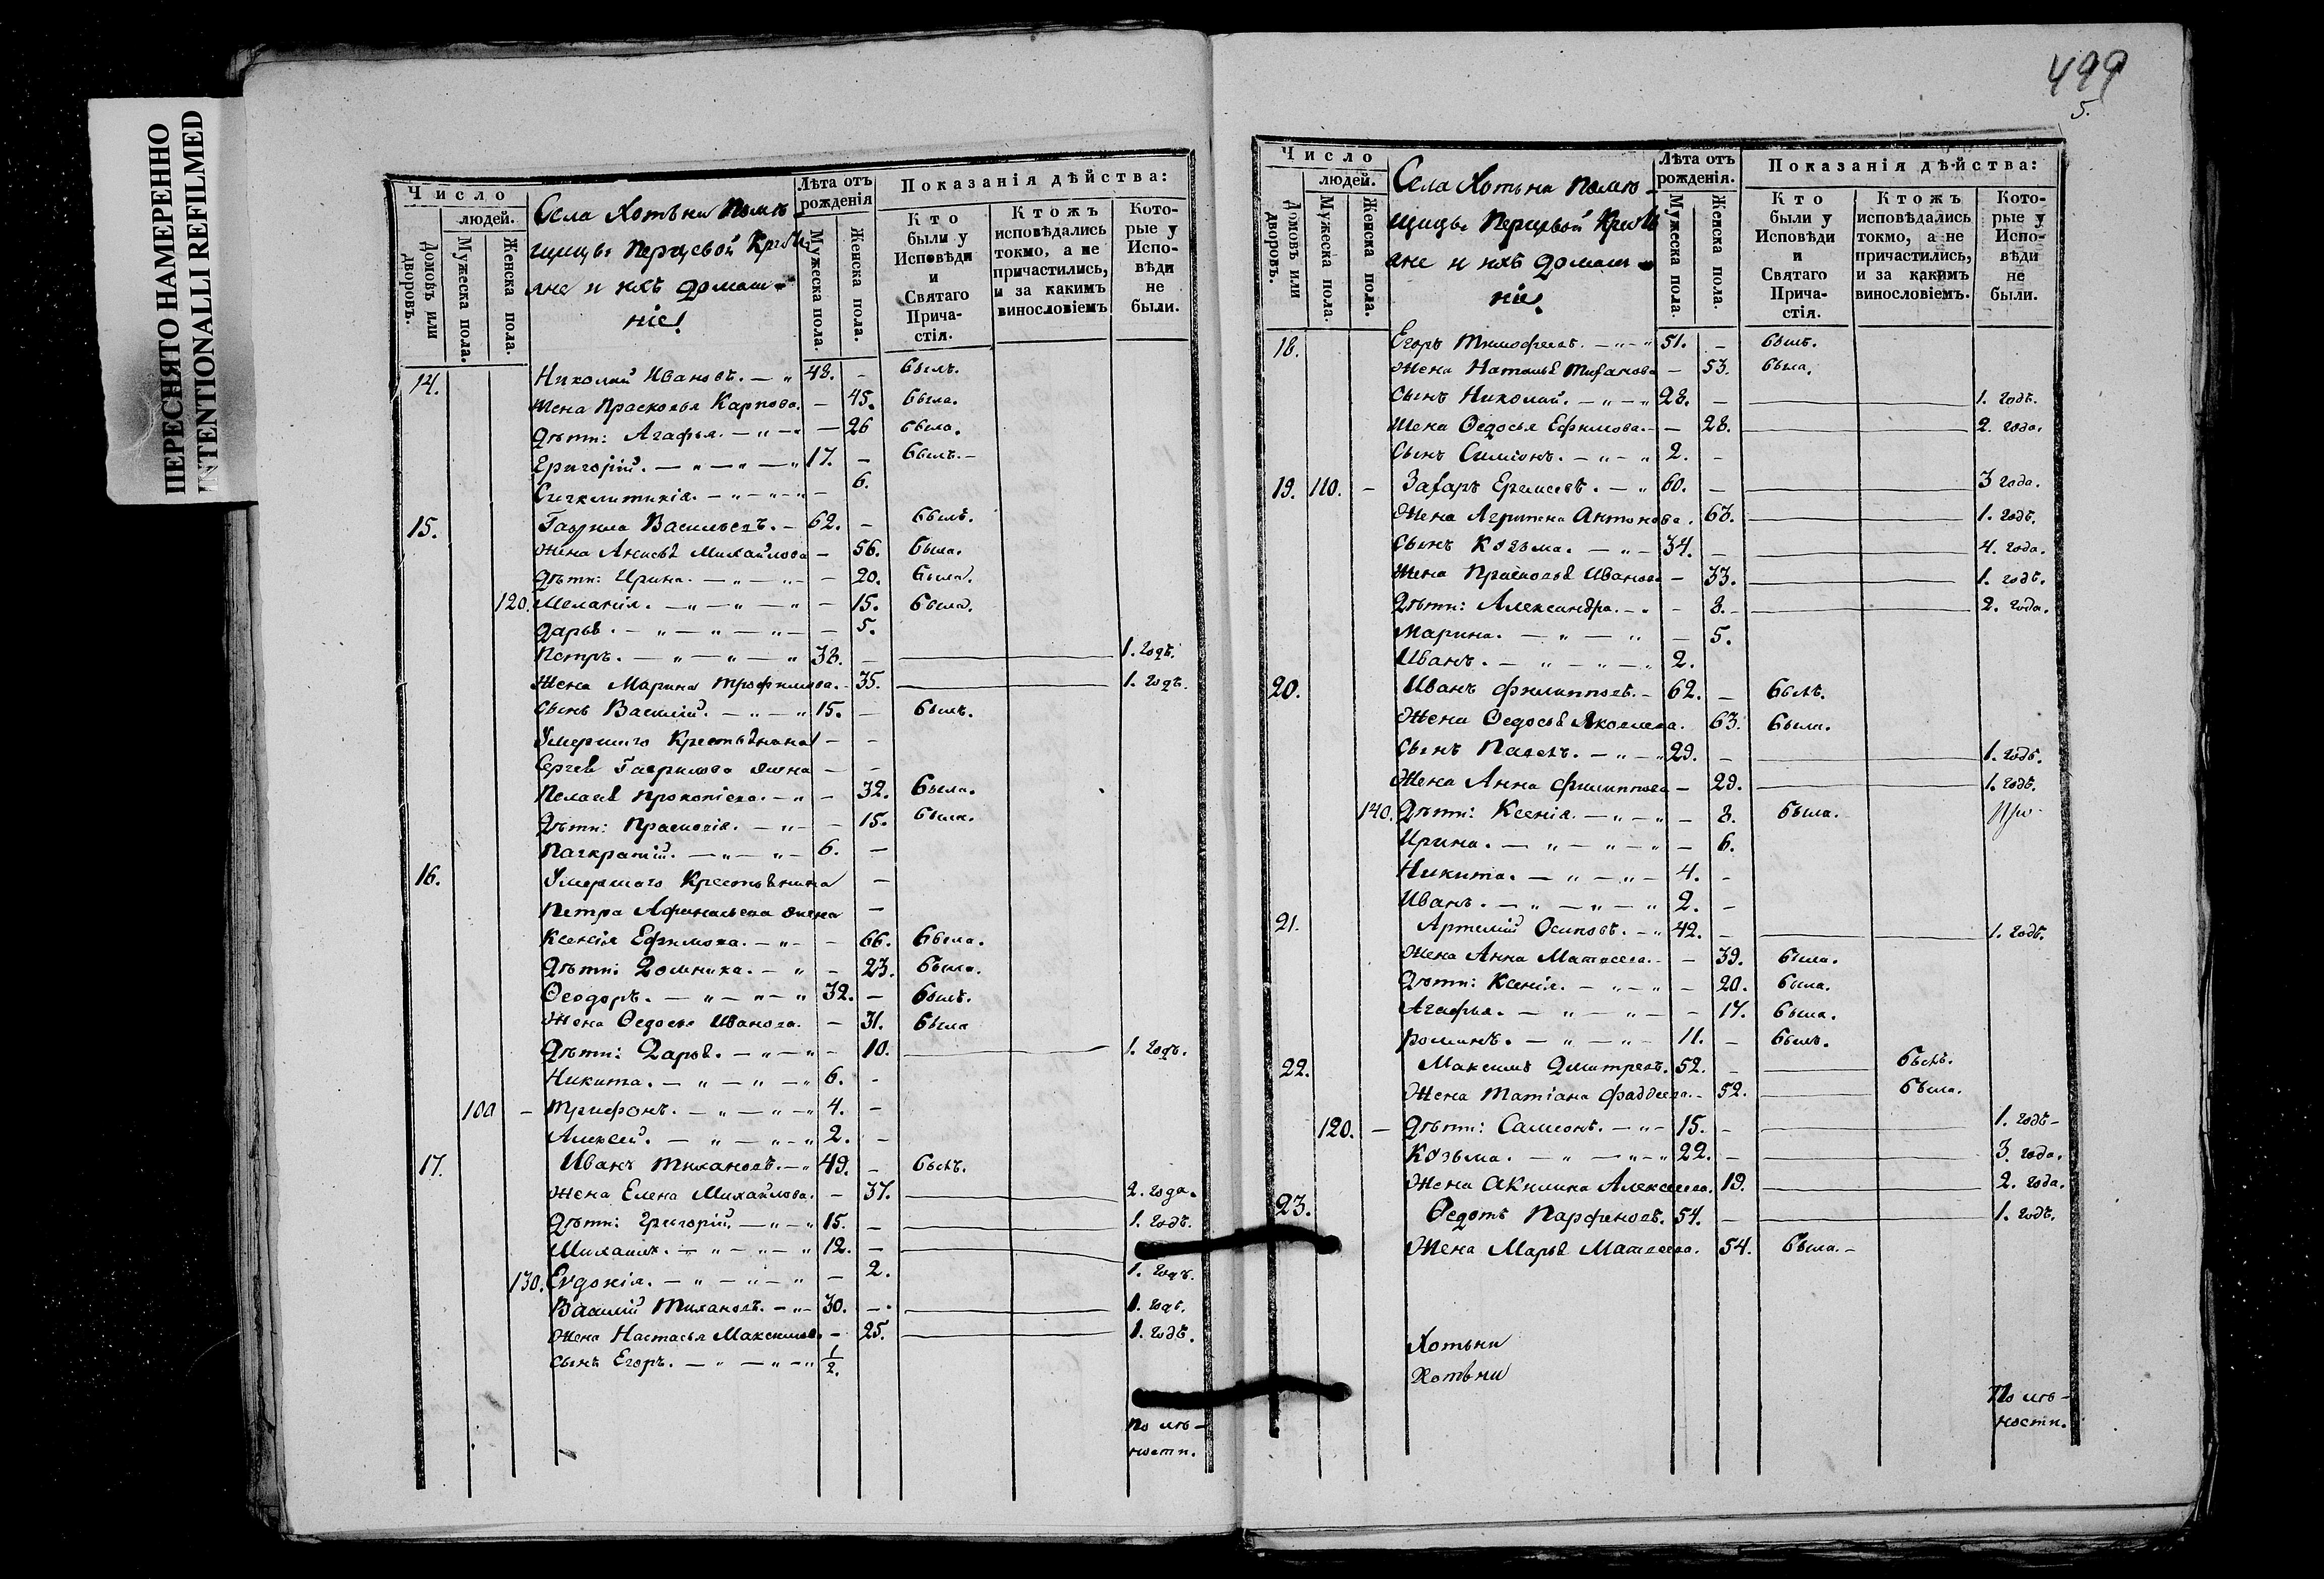 ПЕРЕСНЯТО НАМЕРЕННО
INTENTIONALLI REFILMED
Число
людей.
Домовъ или дворовъ.
Мужеска пола.
Женска пола.
Села Хотьни помѣ-
щицы Перцевой Кресть
яне и ихъ домаш-
ніе!
Лѣта отъ рожденія
Мужеска пола.
Женска пола.
Показанія дѣйства:
Кто были у Исповѣди и Святаго Причастія.
Ктожъ исповѣдались токмо, а не причастились, и за какимъ винословіемъ
Которые у Исповѣди не были.
14. Николай Ивановъ. — " 48. – былъ.
Жена Прасковья Карпова. – 45. была.
Дѣти: Агафья. — " — " — 26 была.
Григорій. — " — " — " 17. – былъ. –
Сигклитикія. — " — " — " – 6.
15. Гаврила Васильевъ. – 62. – былъ.
Жена Анисья Михайлова – 56. была.
Дѣти: Ирина. — " — " – – 20. была.
120. Меланія. — " — " — " – 15. была.
Дарья. — " — " — " – – 5.
Петръ. — " — " — " 38. – 1. годъ.
Жена Марина Трофимова. – 35. 1. годъ.
Сынъ Василій. — " — " 15. – былъ.
Умершаго Крестьянина – –
Сергея Гаврилова жена – –
Пелагея Прокопіева. — " – 32. была.
Дѣти: Прасковія. — " – – 15. была.
Панкратій. — " — " – 6. –
16. Умершаго Крестьянина –
Петра Афанасьева жена –
Ксенія Ефимова. — " – – 66. была.
Дѣти: Домника. — " – 23. была.
Ѳеодоръ. — " — " — " 32. – былъ.
Жена Ѳедосья Иванова. – 31. была
Дѣти: Дарья. — " — " – 10. 1. годъ.
Никита. — " — " — " 6. –
100 – Трифонъ. — " — " — " 4. –
Алексей. — " — " — " 2. –
17. Иванъ Тихановъ. — " 49. – былъ.
Жена Елена Михайлова. – 37. 2. года.
Дѣти: Григорій. — " — " 15. – 1. годъ.
Михаилъ. — " — " — " 12. –
130. Евдокія. — " — " — " – 2. 1. годъ.
Василій Тихановъ. — " – 30. – 1. годъ.
Жена Настасья Максимова. – 25. 1. годъ.
Сынъ Егоръ. — " — " — " 1/2.
по лѣ-
ности.
499
5.
Число
людей.
Домовъ или дворовъ.
Мужеска пола.
Женска пола.
Села Хотьни помѣ-
щицы Перцевой Кресть
яне и ихъ домаш-
ніе!
Лѣта отъ рожденія.
Мужеска пола.
Женска пола.
Показанія дѣйства:
Кто были у Исповѣди и Святаго Причастія.
Ктожъ исповѣдались токмо, а не причастились, и за какимъ винословіемъ.
Которые у Исповѣди не были.
18. Егоръ Тимофеевъ. — " — " 51. – былъ.
Жена Наталья Тиханова – 53. была.
Сынъ Николай. — " — " 28. – 1. годъ.
Жена Ѳедосья Ефимова. – – 28. 2. года.
Сынъ Симіонъ. — " — " 2. –
19. 110. – Захаръ Еремеевъ. — " 60. – 3 года.
Жена Агрипена Антонова. 63. 1. годъ.
Сынъ Козьма. — " – 34. – 4. года.
Жена Прасковья Иванова – 33. 1. годъ.
Дѣти: Александра. — " – 8. – 2. года.
Марина. — " — " – 5.
Иванъ. — " — " — " 2.
20. Иванъ Филипповъ. – 62. – былъ.
Жена Ѳедосья Яковлева. 63. была.
Сынъ Павелъ. — " — " 29. – 1. годъ.
Жена Анна Филиппова – 29. 1. годъ.
140. Дѣти: Ксенія. — " — " – 8. была.
Ирина. — " — " — " – 6.
Никита. — " — " – 4. –
Иванъ. — " — " — " 2. –
21. Артемій Осиповъ. — " 42. – 1. годъ.
Жена Анна Матвеева. – – 39. была.
Дѣти: Ксенія. — " — " – 20. была.
Агафья. — " — " – – 17. была.
Романъ. — " — " – 11. – былъ.
22. Максимъ Дмитревъ. 52. – былъ.
Жена Татіана Фаддеева. – 52. была.
120. – Дѣти: Самсонъ. — " – 15. – 1. годъ –
Козьма. — " — " — " 22. – 3. года.
Жена Акилина Алексеева. 19. 2. года.
23. Ѳедотъ Парфеновъ. 54. – 1. годъ.
Жена Марья Матвеева. 54. была. –
Хотьни
Хотьни
По лѣ-
ности.